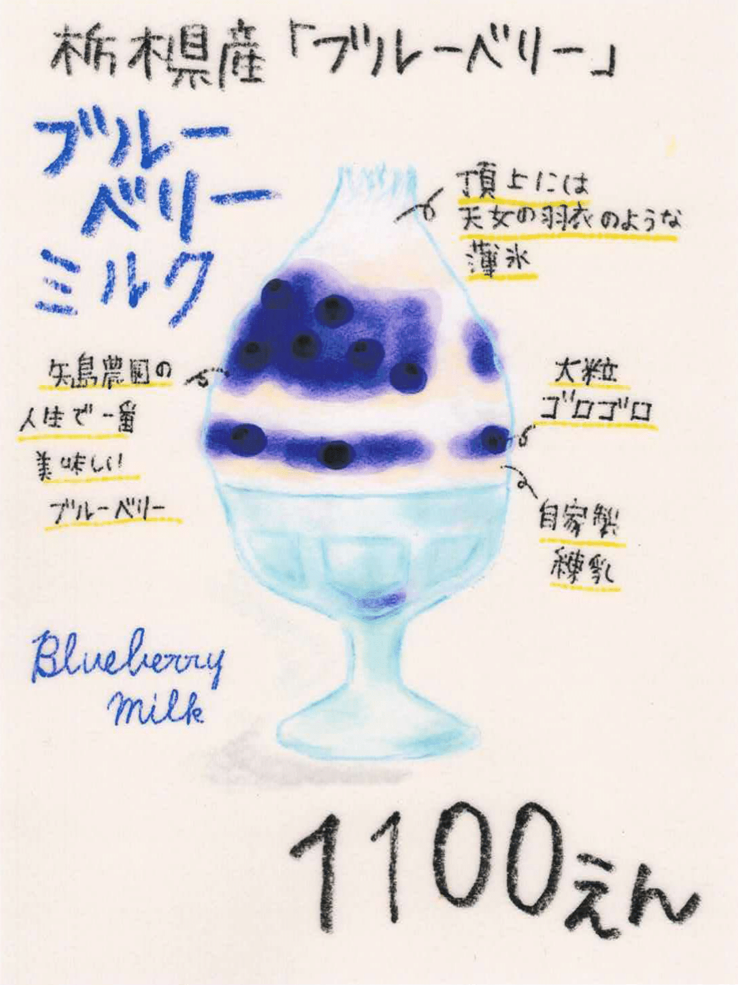 栃木県産「ブルーベリー」
ブルー
ベリー
ミルク
頂上には
天女の羽衣のような
薄氷
矢島農園の
人生で一番
美味しい
ブルーベリー
大粒
ゴロゴロ
自家製
練乳
Blueberry
milk
1100えん